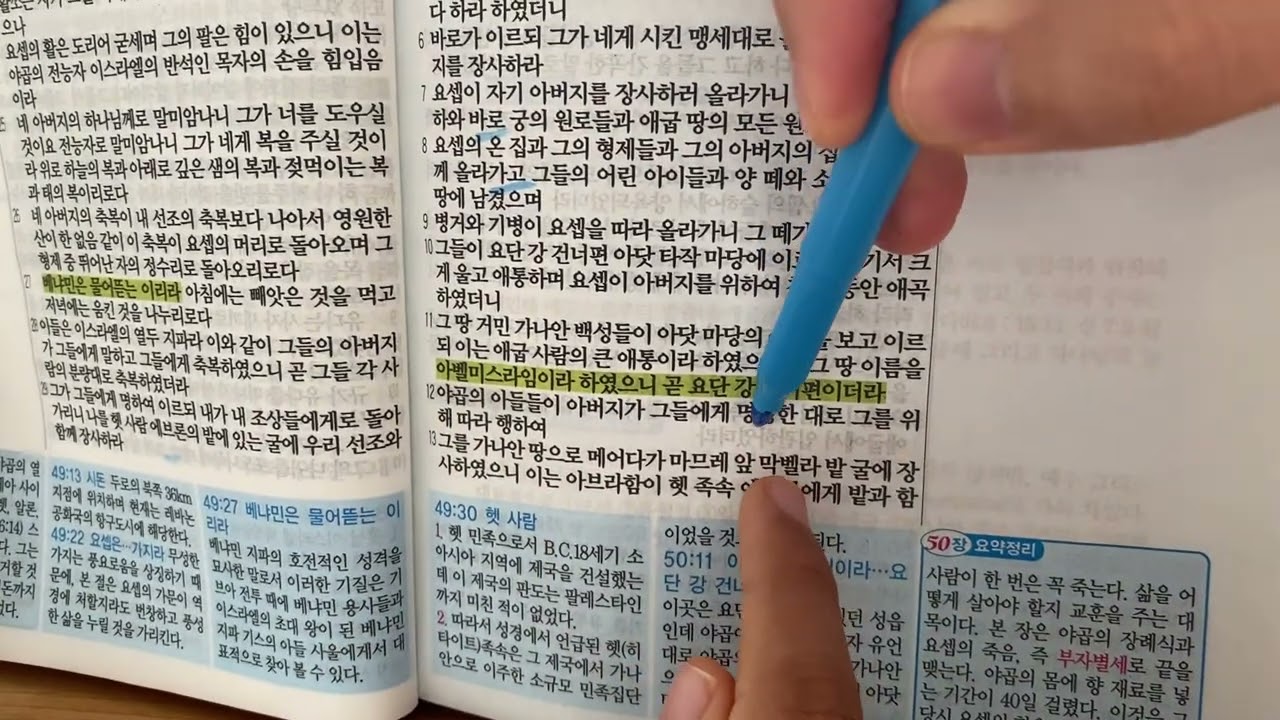 으나
요셉의 활은 도리어 굳세며 그의 팔은 힘이 있으니 이는
야곱의 전능자 이스라엘의 반석인 목자의 손을 힘입음
이라
25 네 아버지의 하나님께로 말미암나니 그가 너를 도우실
것이요 전능자로 말미암나니 그가 네게 복을 주실 것이
라 위로 하늘의 복과 아래로 깊은 샘의 복과 젖먹이는 복
과 태의 복이리로다
26 네 아버지의 축복이 내 선조의 축복보다 나아서 영원한
산이 한 없음 같이 이 축복이 요셉의 머리로 돌아오며 그
형제 중 뛰어난 자의 정수리로 돌아오리로다
27 베냐민은 물어뜯는 이리라 아침에는 빼앗은 것을 먹고
저녁에는 움킨 것을 나누리로다
28 이들은 이스라엘의 열두 지파라 이와 같이 그들의 아버지
가 그들에게 말하고 그들에게 축복하였으니 곧 그들 각 사
람의 분량대로 축복하였더라
29 그가 그들에게 명하여 이르되 내가 내 조상들에게로 돌아
가리니 나를 헷 사람 에브론의 밭에 있는 굴에 우리 선조와
함께 장사하라
49:13 시돈 두로의 북쪽 36km
지점에 위치하며 현재는 레바논
공화국의 항구도시에 해당한다.
49:22 요셉은…가지라 무성한
가지는 풍요로움을 상징하기 때
문에, 본 절은 요셉의 가문이 역
경에 처할지라도 번창하고 풍성
한 삶을 누릴 것을 가리킨다.
49:27 베냐민은 물어뜯는 이
리라
베냐민 지파의 호전적인 성격을
묘사한 말로서 이러한 기질은 기
브아 전투 때에 베냐민 용사들과
이스라엘의 초대 왕이 된 베냐민
지파 기스의 아들 사울에게서 대
표적으로 찾아 볼 수 있다.
다 하라 하였더니
6 바로가 이르되 그가 네게 시킨 맹세대로
지를 장사하라
7 요셉이 자기 아버지를 장사하러 올라가니
하와 바로 궁의 원로들과 애굽 땅의 모든
8 요셉의 온 집과 그의 형제들과 그의 아버지의
께 올라가고 그들의 어린 아이들과 양 떼와
땅에 남겼으며
9 병거와 기병이 요셉을 따라 올라가니 그 떼가
10 그들이 요단 강 건너편 아닷 타작 마당에 크
게 울고 애통하며 요셉이 아버지를 위하여 동안 애곡
하였더니
11 그 땅 거민 가나안 백성들이 아닷 마당의 보고 이르
되 이는 애굽 사람의 큰 애통이라 하였으 그 땅 이름을
아벨미스라임이라 하였으니 곧 요단 강 편이더라
12 야곱의 아들들이 아버지가 그들에게 대로 그를 위
해 따라 행하여
13 그를 가나안 땅으로 메어다가 마므레 앞 막벨라 밭 굴에 장
사하였으니 이는 아브라함이 헷 족속 에게 밭과 함
49:30 헷 사람
1. 헷 민족으로서 B.C.18세기 소
아시아 지역에 제국을 건설했는
데 이 제국의 판도는 팔레스타인
까지 미친 적이 없었다.
2. 따라서 성경에서 언급된 헷(히
타이트)족속은 그 제국에서 가나
안으로 이주한 소규모 민족집단
이었을 것
50:11 요
단 강 건너
이곳은 요단 성읍
인데 야곱 유언
대로 야곱 가나안
아닷
50장 요약정리
사람이 한 번은 꼭 죽는다. 삶을 어
떻게 살아야 할지 교훈을 주는 대
목이다. 본 장은 야곱의 장례식과
요셉의 죽음, 즉 부자별세로 끝을
맺는다. 야곱의 몸에 향 재료를 넣
는 기간이 40일 걸렸다.